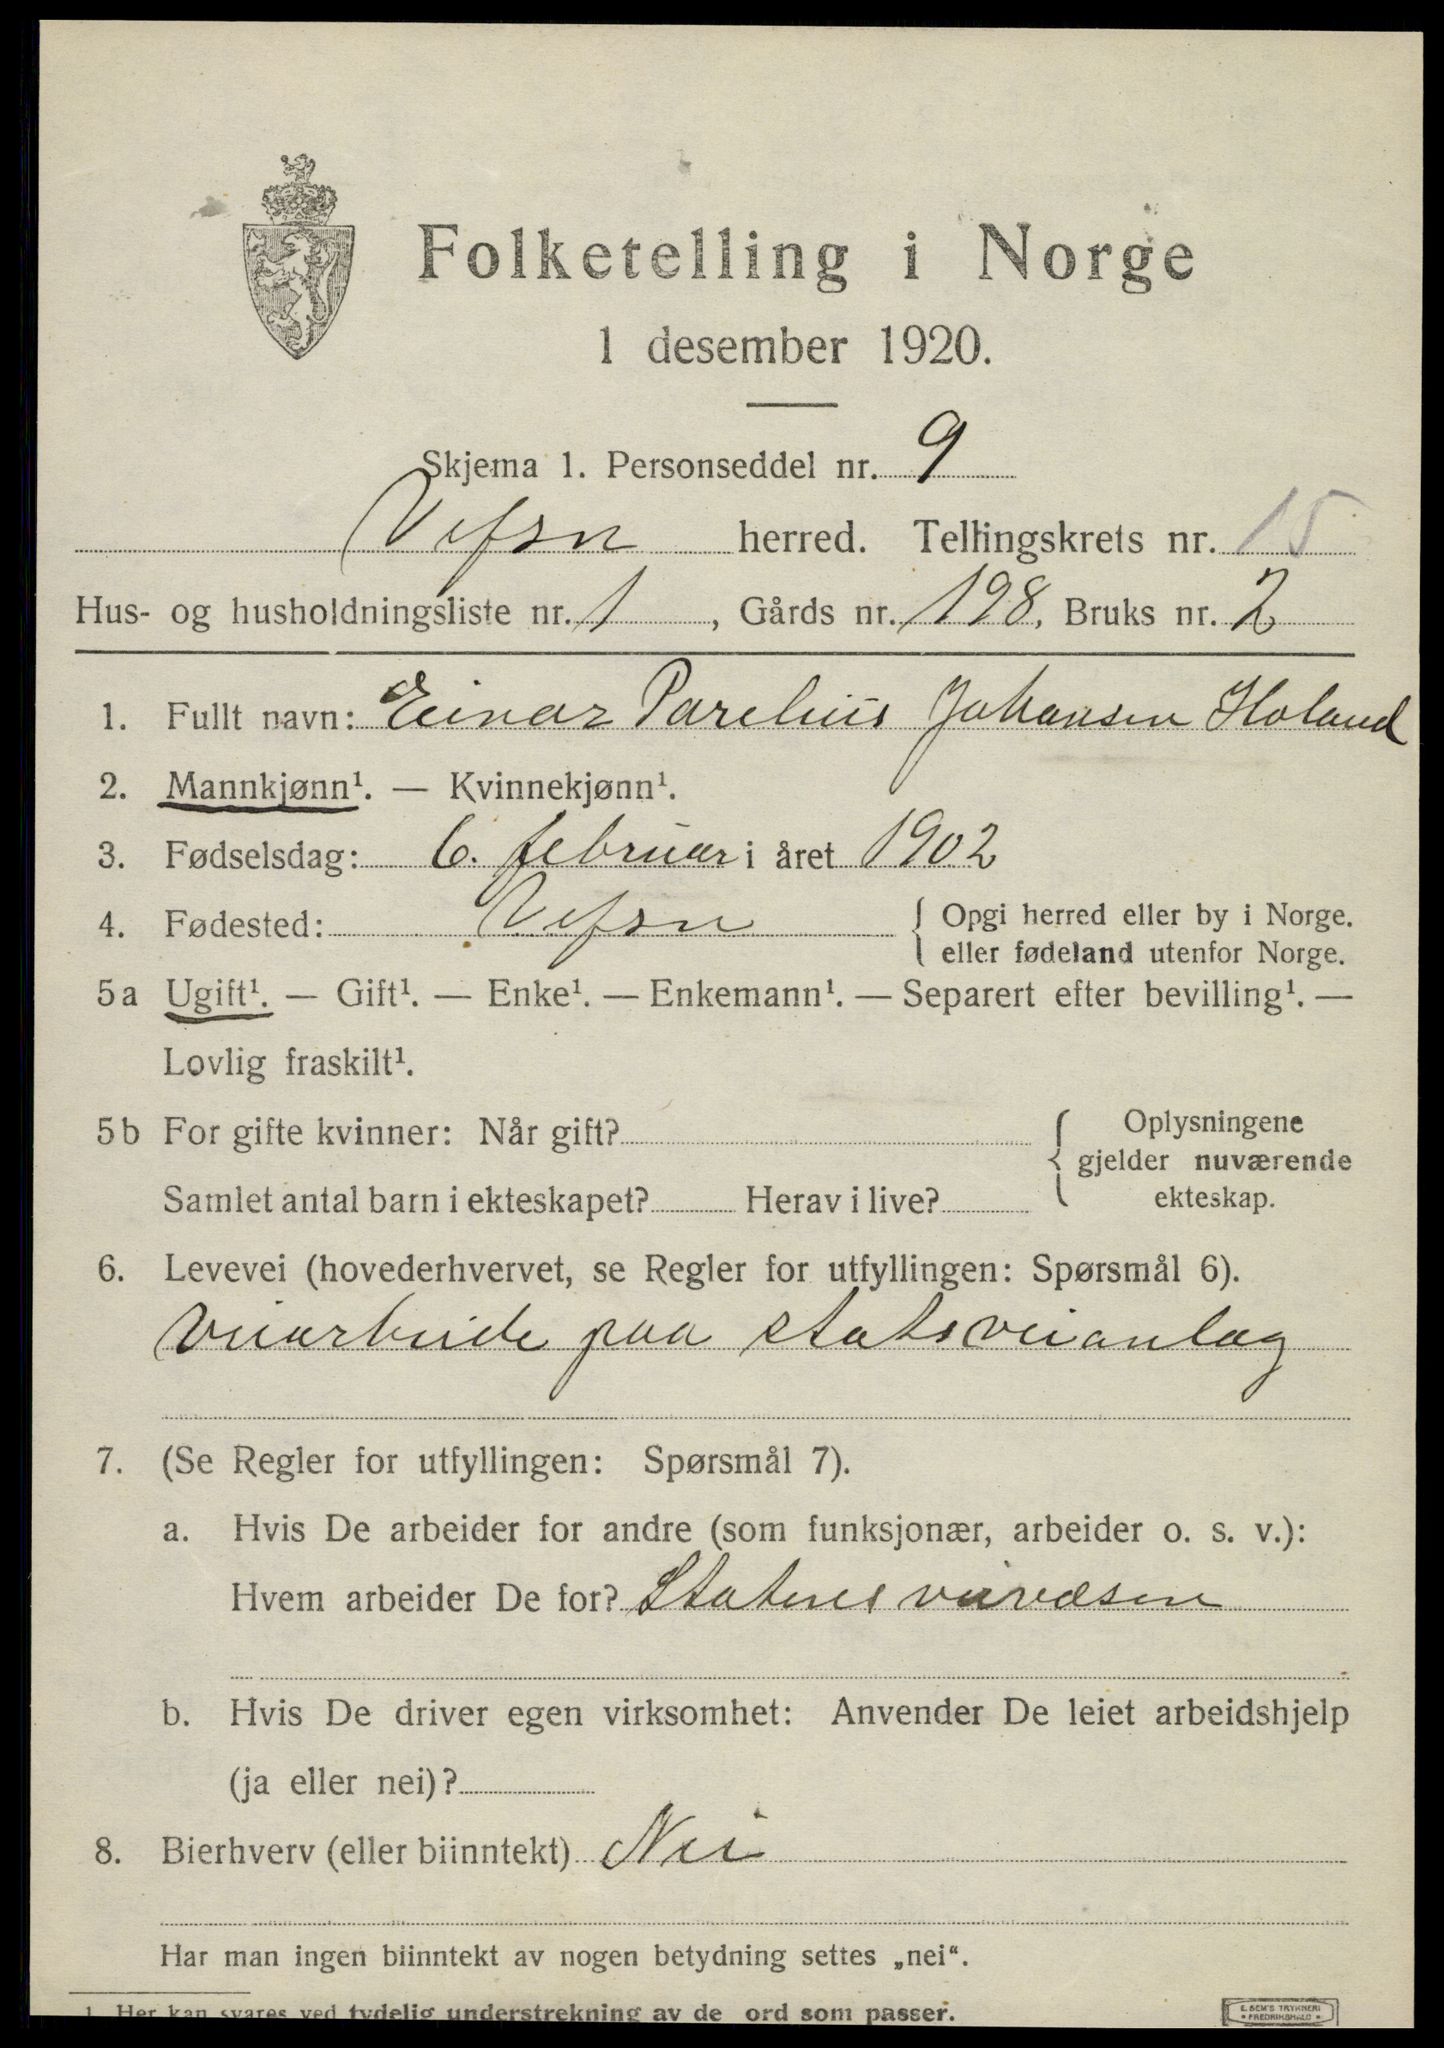 Folketelling i Norge
1 desember 1920.
Skjema 1. Personseddel nr. 9
Vefsn herred. Tellingskrets nr. 15
Hus- og husholdningsliste nr. 1, Gårds nr. 198, Bruks nr. 2
1. Fullt navn: Einar Parelius Johansen Holand
2. Mannkjønn¹. — Kvinnekjønn¹.
3. Fødselsdag: 6. februar i året 1902
4. Fødested: Vefsn { Opgi herred eller by i Norge.
eller fødeland utenfor Norge.
5a Ugift¹. — Gift¹. — Enke¹. — Enkemann¹. — Separert efter bevilling¹. —
Lovlig fraskilt¹.
5b For gifte kvinner: Når gift? { Oplysningene
gjelder nuværende
Samlet antal barn i ekteskapet? Herav i live? ekteskap.
6. Levevei (hovederhvervet, se Regler for utfyllingen: Spørsmål 6).
Veiarbeide paa statsveianlæg
7. (Se Regler for utfyllingen: Spørsmål 7).
a. Hvis De arbeider for andre (som funksjonær, arbeider o. s. v.):
Hvem arbeider De for? Statens veivæsen
b. Hvis De driver egen virksomhet: Anvender De leiet arbeidshjelp
(ja eller nei)?
8. Bierhverv (eller biinntekt) Nei
Har man ingen biinntekt av nogen betydning settes „nei“.
1. Her kan svares ved tydelig understrekning av de ord som passer.
E. SEM'S TRYKKERI
FREDRIKSHALD